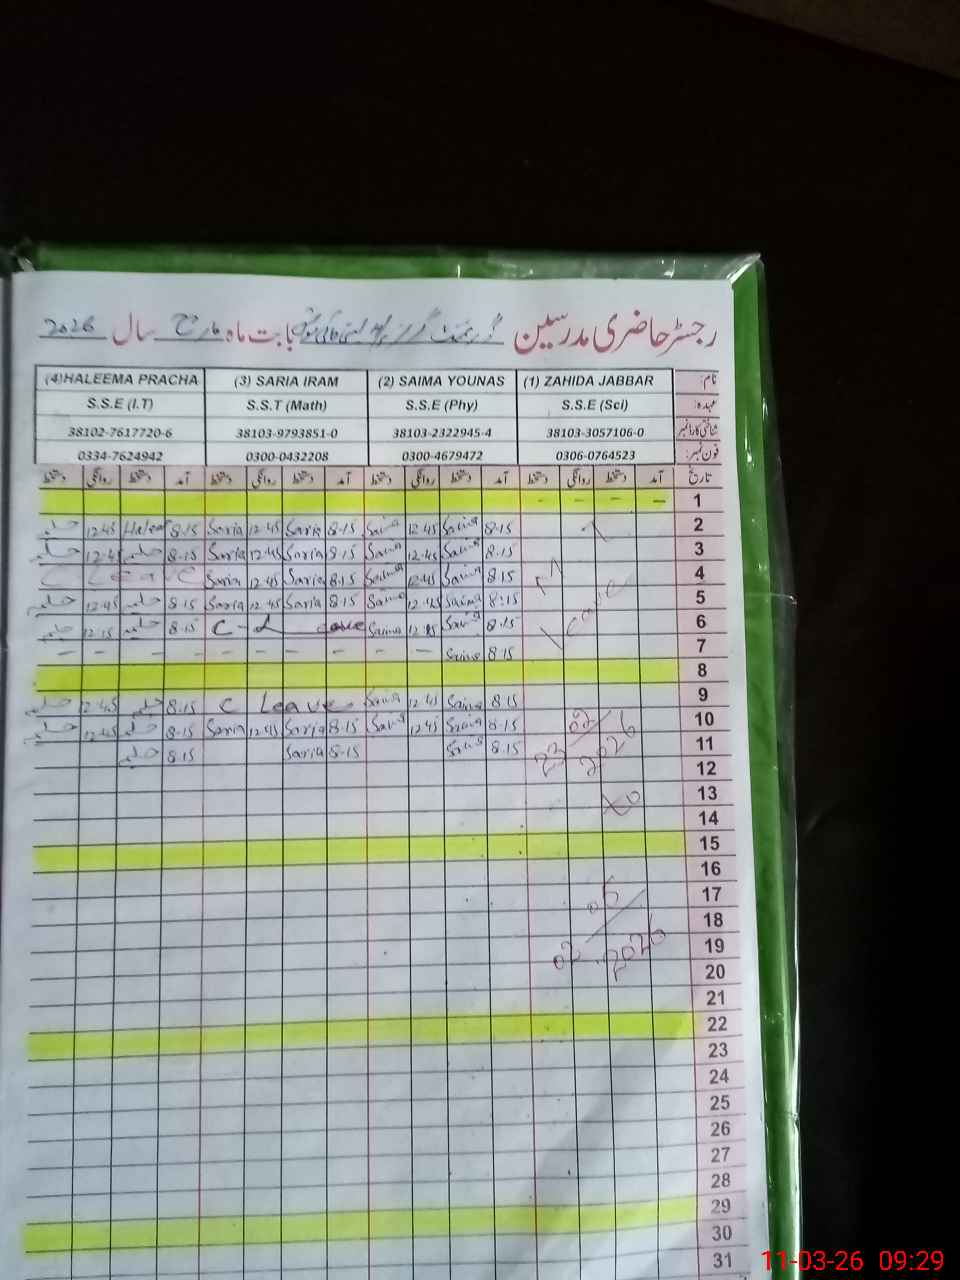 رجسٹر حاضری مدرسین گورنمنٹ گرلز بابت ماہ مارچ سال 2026
نام: (1) ZAHIDA JABBAR (2) SAIMA YOUNAS (3) SARIA IRAM (4)HALEEMA PRACHA
عہدہ: S.S.E (Sci) S.S.E (Phy) S.S.T (Math) S.S.E (I.T)
شناختی کارڈ نمبر 38103-3057106-0 38103-2322945-4 38103-9793851-0 38102-7617720-6
فون نمبر: 0306-0764523 0300-4679472 0300-0432208 0334-7624942
تاریخ آمد دستخط روانگی دستخط آمد دستخط روانگی دستخط آمد دستخط روانگی دستخط آمد دستخط روانگی دستخط
1 - - - -
2 8.15 Saima 12.45 Saima 8.15 Saria 12.45 Saria 8.15 Haleema 12.45 حلیمہ
3 8.15 Saima 12.45 Saima 8.15 Saria 12.45 Saria 8.15 حلیمہ 12.45 حلیمہ
4 8.15 Saima 12.45 Saima 8.15 Saria 12.45 Saria C Leave
5 8:15 Saima 12.45 Saima 8.15 Saria 12.45 Saria 8.15 حلیمہ 12.45 حلیمہ
6 8.15 Saima 12.15 Saima C-Leave 8.15 حلیمہ 12.15 حلیمہ
7 8.15 Saima - - - - - - - - - -
8
9 8.15 Saima 12.45 Saima C Leave 8.15 حلیمہ 12.45 حلیمہ
10 8.15 Saima 12.45 Saima 8.15 Saria 12.45 Saria 8.15 حلیمہ 12.45 حلیمہ
11 8.15 Saima 8.15 Saria 8.15 حلیمہ
12
13
14
15
16
17
18
19
20
21
22
23
24
25
26
27
28
29
30
31
Leave
23 02/2026
To
02 2026
11-03-26 09:29